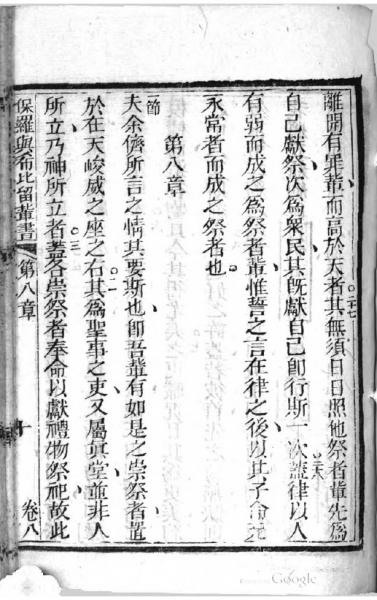 離開有罪輩而高於天者其無須日日照他祭者輩先爲
自己獻祭次爲衆民其既獻自己卽行斯一次蓋律以人
有弱而成之爲祭者輩惟誓之言在律之後以其子爲
永常者而成之祭者也
第八章
一節
夫余儕所言之情其要斯也卽吾輩有如是之崇祭者置
於在天峻威之座之右其爲聖事之吏又屬眞堂並非人
所立乃神所立者蓋各崇祭者奉命以獻禮物祭祀故此
保羅與希比留輩書
第八章
十
卷八
二七
二八
二
三
Google